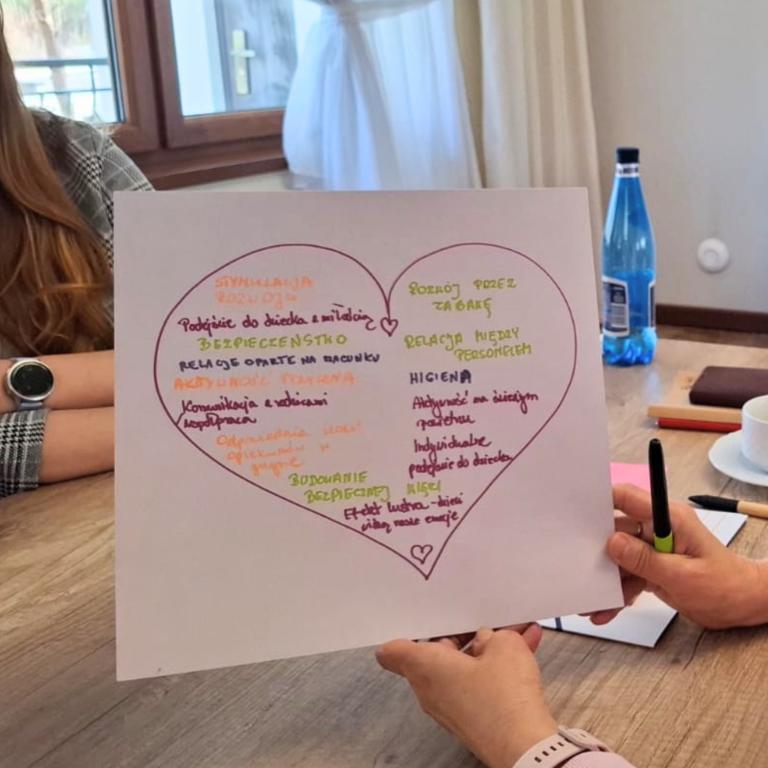 STYMULACJA
ROZWOJU
Podejście do dziecka z miłością
BEZPIECZEŃSTWO
RELACJE OPARTE NA SZACUNKU
AKTYWNOŚĆ FIZYCZNA
Komunikacja z rodzicami
współpraca
Odpowiednia ilość
opiekunów w
grupie
BUDOWANIE
BEZPIECZNEJ WIĘZI
Efekt lustra - dzieci
widzą nasze emocje
ROZWÓJ PRZEZ
ZABAWĘ
RELACJA MIĘDZY
PERSONELEM
HIGIENA
Aktywność na świeżym
powietrzu
Indywidualne
podejście do dziecka